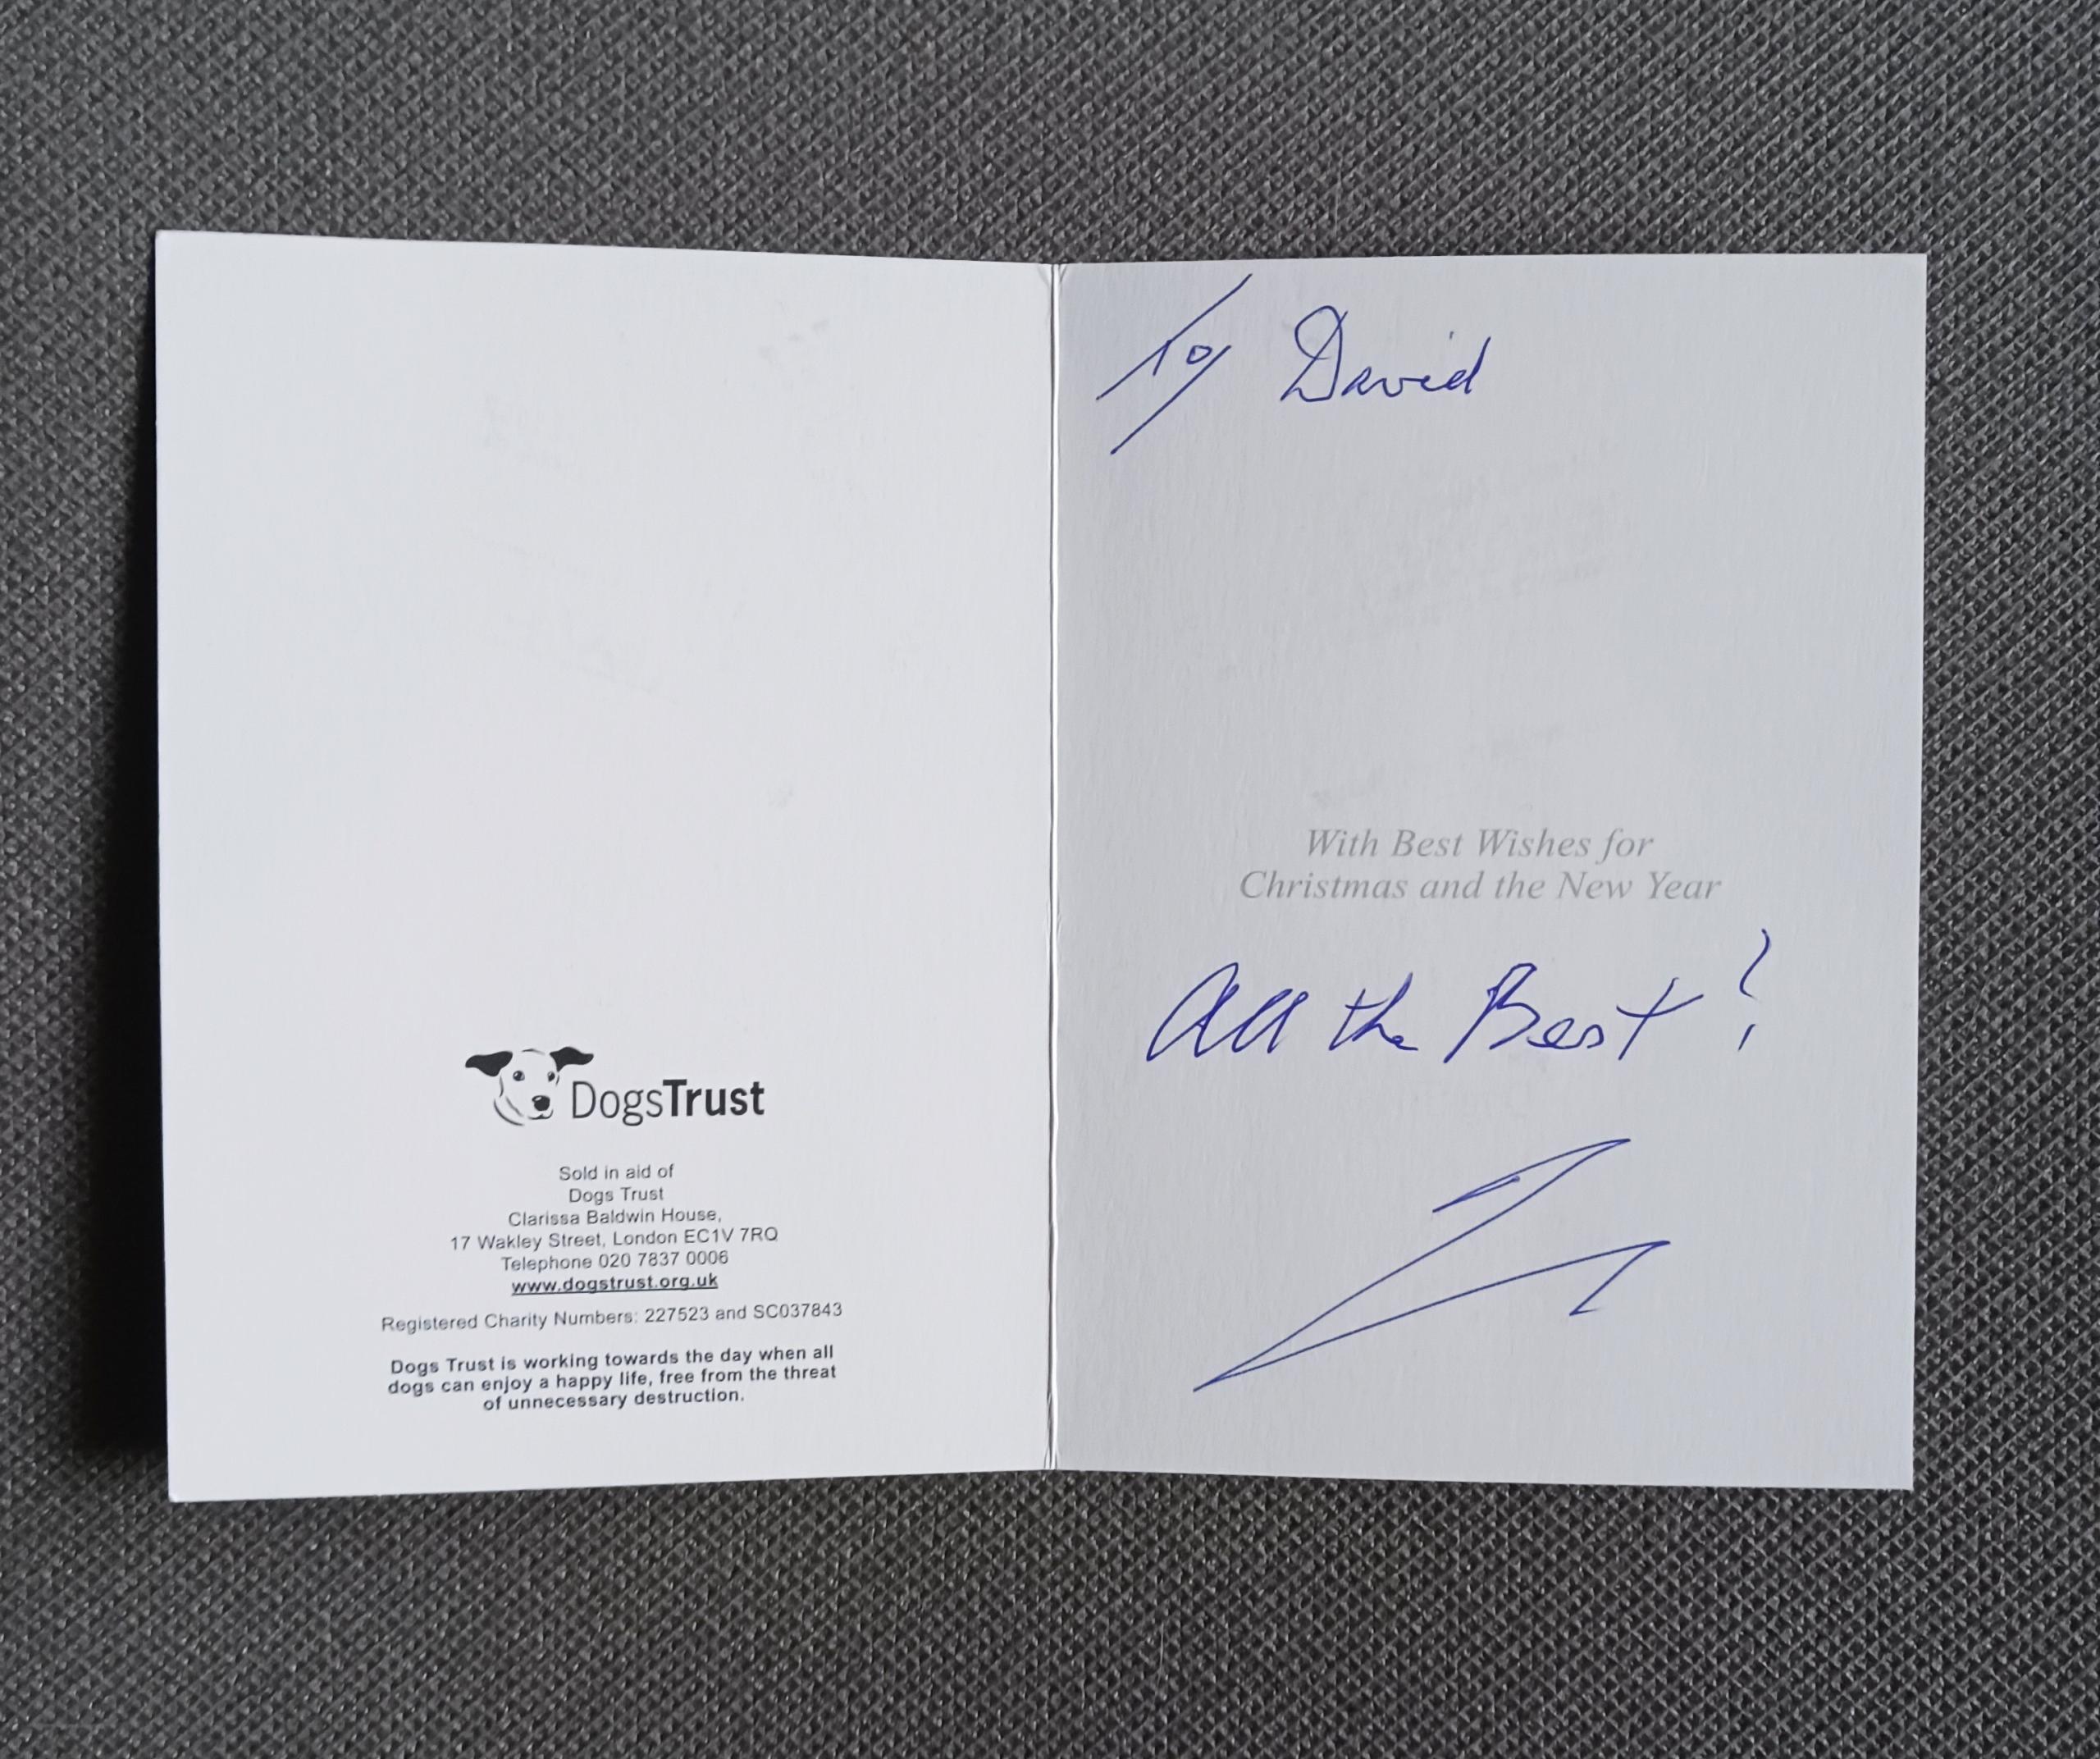 DogsTrust
Sold in aid of
Dogs Trust
Clarissa Baldwin House,
17 Wakley Street, London EC1V 7RQ
Telephone 020 7837 0006
www.dogstrust.org.uk
Registered Charity Numbers: 227523 and SC037843
Dogs Trust is working towards the day when all
dogs can enjoy a happy life, free from the threat
of unnecessary destruction.
To David
With Best Wishes for
Christmas and the New Year
All the Best!